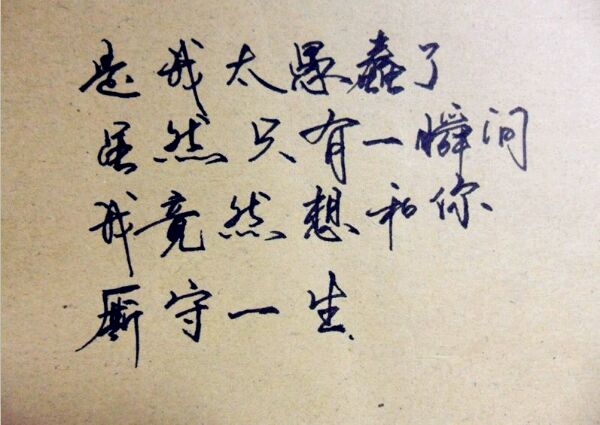 是我太愚蠢了
虽然只有一瞬间
我竟然想和你
厮守一生